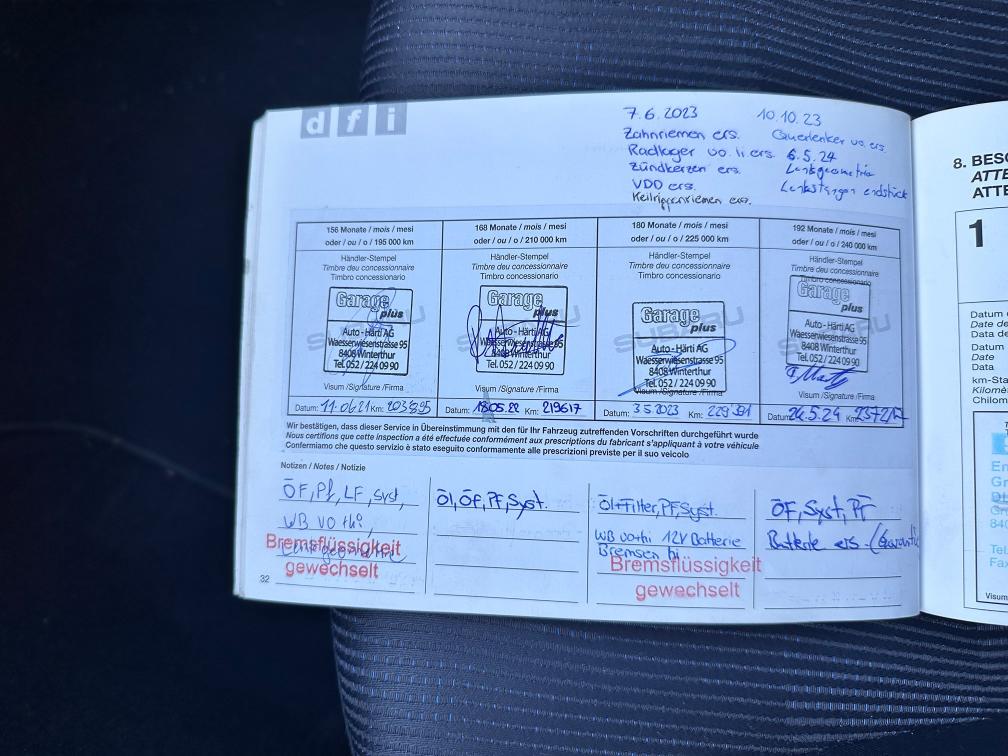 d f i
7.6.2023
Zahnriemen ers.
Radlager vo. li ers.
Zündkerzen ers.
VDD ers.
Keilrippenriemen ers.
10.10.23
Querlenker vo. ers.
6.5.24
Lenkgeometrie
Lenkstangen endstück
156 Monate / mois / mesi
oder / ou / o / 195 000 km
Händler-Stempel
Timbre deu concessionnaire
Timbro concessionario
SUBARU
Garage
plus
Auto - Härti AG
Waesserwiesenstrasse 95
8408 Winterthur
Tel. 052 / 224 09 90
Visum /Signature /Firma
Datum: 11.06.21 Km: 203895
168 Monate / mois / mesi
oder / ou / o / 210 000 km
Händler-Stempel
Timbre deu concessionnaire
Timbro concessionario
Garage
plus
Auto - Härti AG
Waesserwiesenstrasse 95
8408 Winterthur
Tel. 052 / 224 09 90
Visum /Signature /Firma
Datum: 18.05.22 Km: 219617
180 Monate / mois / mesi
oder / ou / o / 225 000 km
Händler-Stempel
Timbre deu concessionnaire
Timbro concessionario
SUBARU
Garage
plus
Auto - Härti AG
Waesserwiesenstrasse 95
8408 Winterthur
Tel. 052 / 224 09 90
Visum /Signature /Firma
Datum: 3.5.2023 Km: 229391
192 Monate / mois / mesi
oder / ou / o / 240 000 km
Händler-Stempel
Timbre deu concessionnaire
Timbro concessionario
Garage
plus
Auto - Härti AG
Waesserwiesenstrasse 95
8408 Winterthur
Tel. 052 / 224 09 90
Visum /Signature /Firma
Datum: 24.5.24 Km:
Wir bestätigen, dass dieser Service in Übereinstimmung mit den für Ihr Fahrzeug zutreffenden Vorschriften durchgeführt wurde
Nous certifions que cette inspection a été effectuée conformément aux prescriptions du fabricant s'appliquant à votre véhicule
Confermiamo che questo servizio è stato eseguito conformemente alle prescrizioni previste per il suo veicolo
Notizen / Notes / Notizie
ÖF, Pf, LF, Syst,
WB vo + hi
Bremsflüssigkeit
gewechselt
Öl, ÖF, PF, Syst.
Öl+Filter, PF, Syst.
WB vo+hi 12V Batterie
Bremsen hi
Bremsflüssigkeit
gewechselt
ÖF, Syst, PF
Batterie ers.
32
8. BESC
ATTE
ATTE
1
Datum
Date de
Data de
Datum
Date
Data
km-Sta
Kilomè
Chilom
En
Gr
840
Tel
Fax
Visum